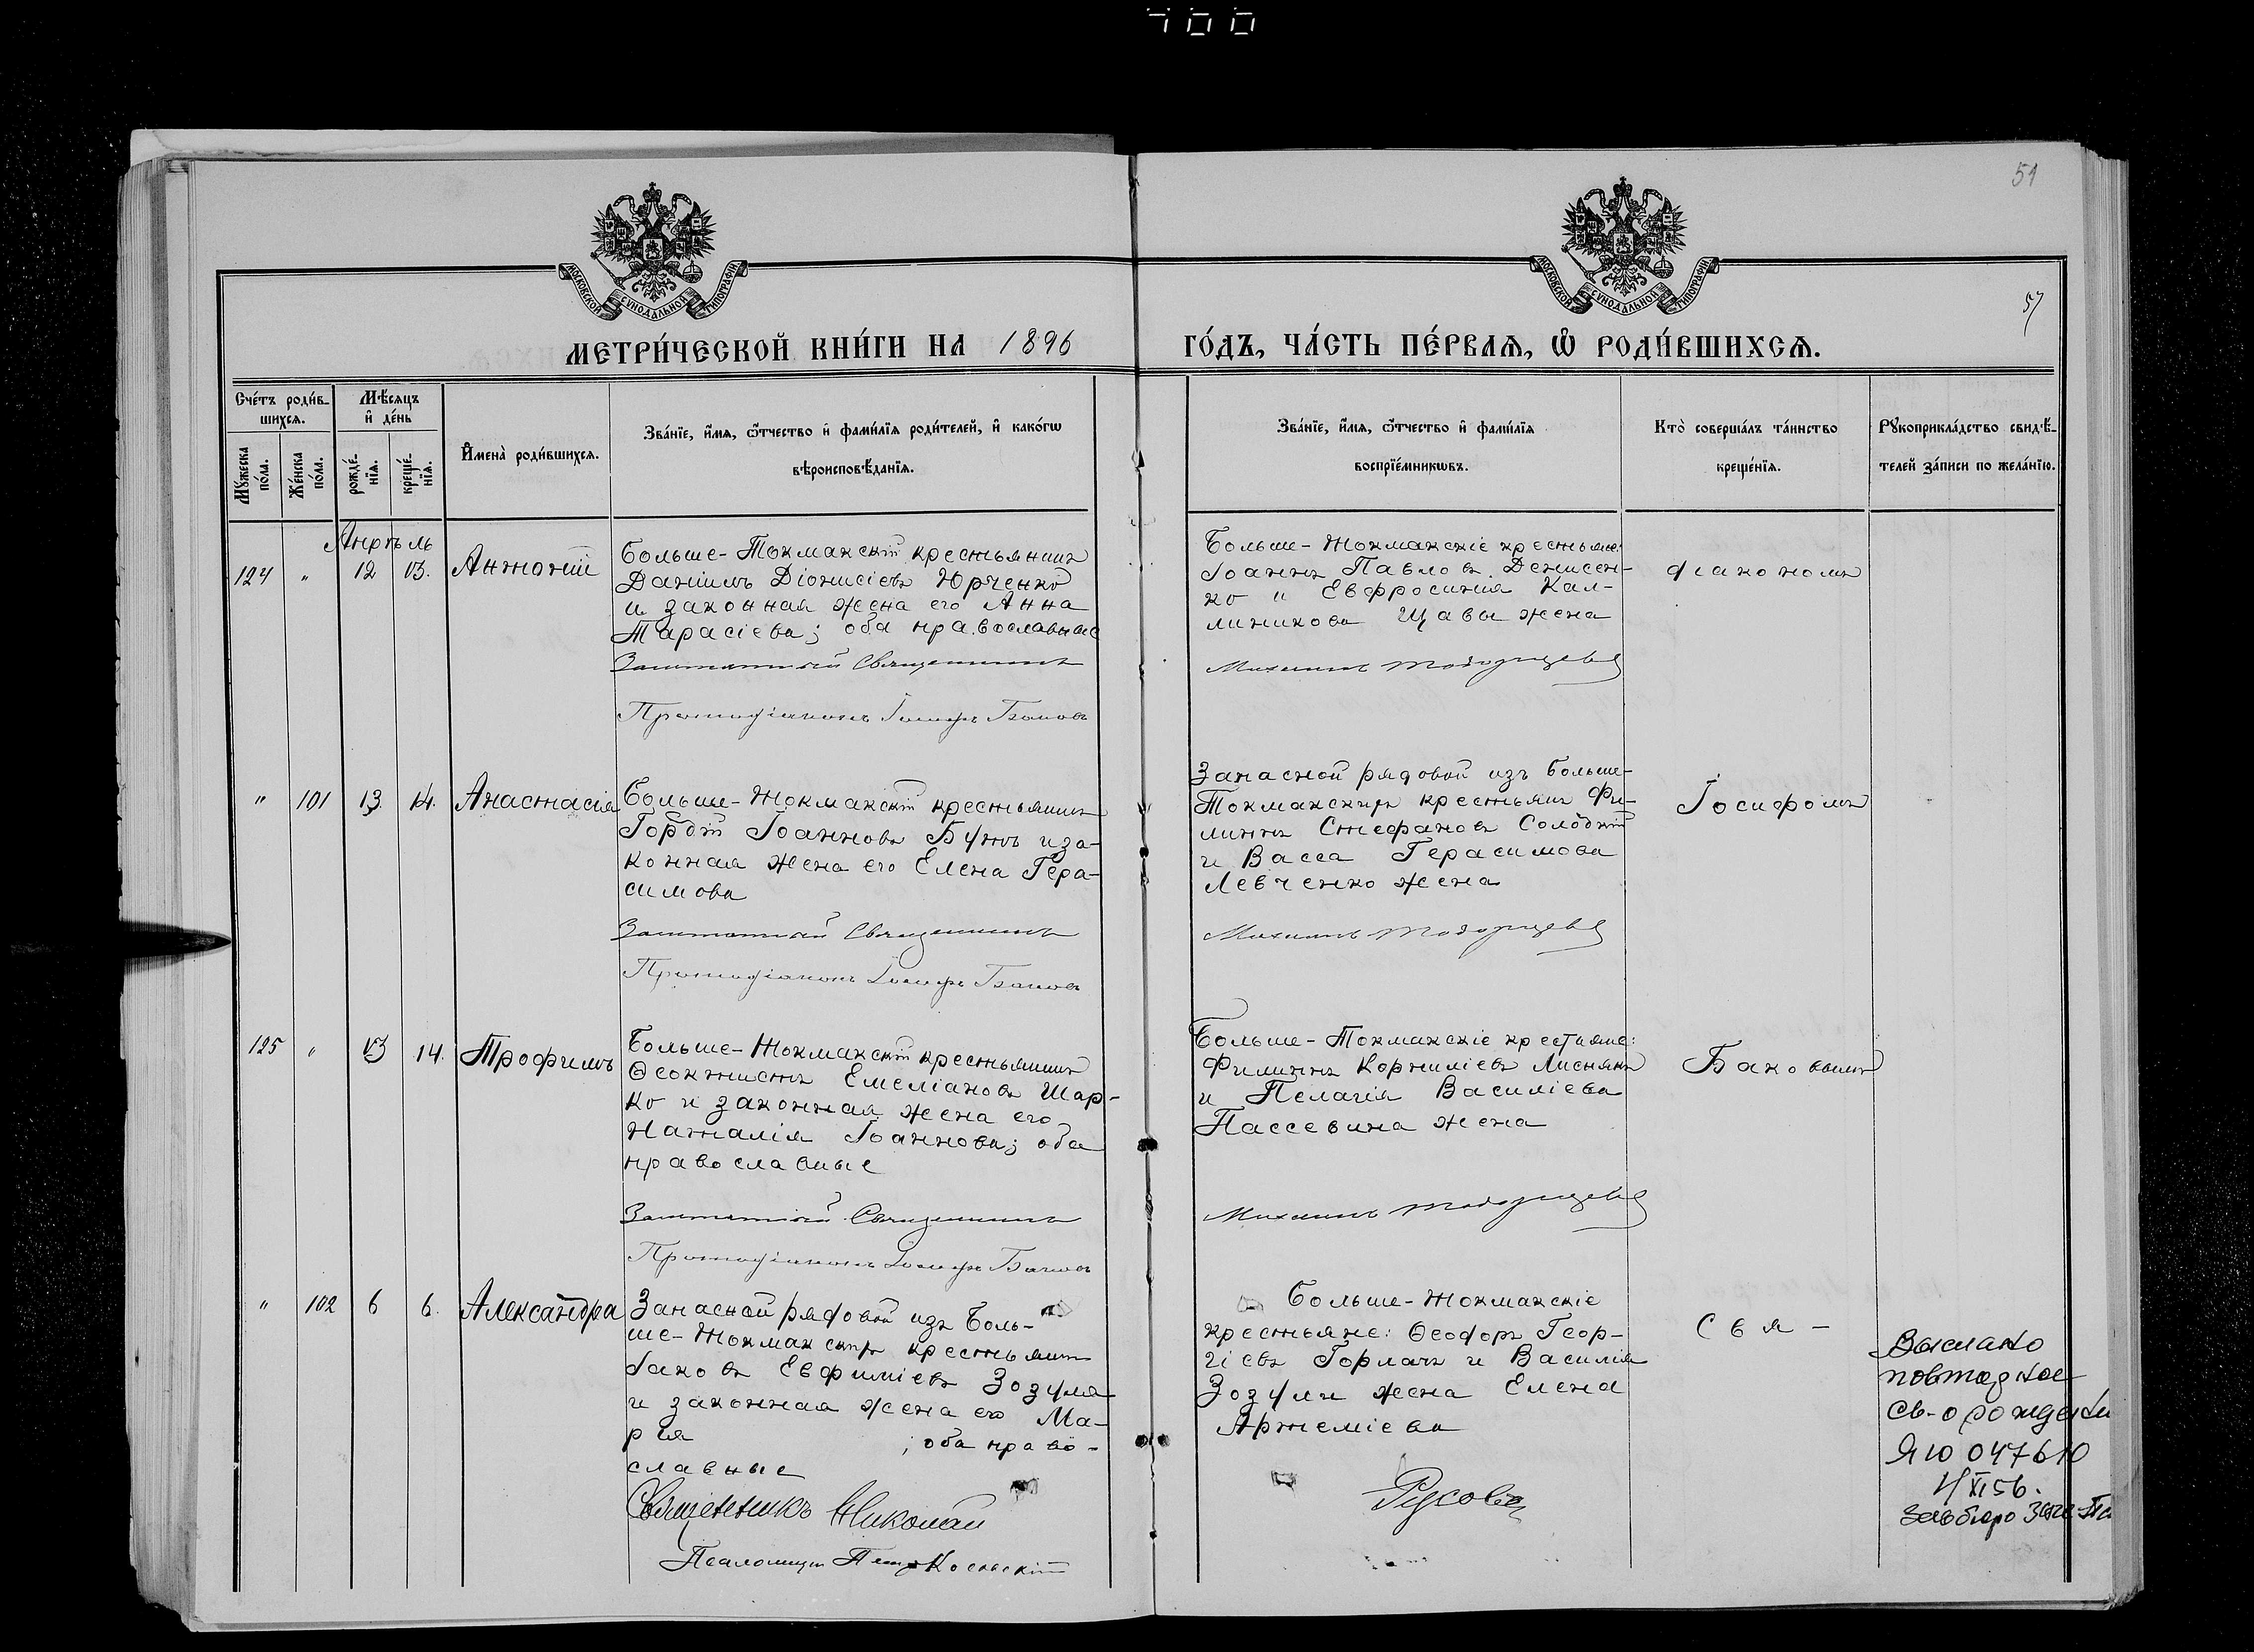 700
51
57
МОСКОВСКОЙ СУНОДАЛЬНОЙ ТИПОГРАФІИ
МОСКОВСКОЙ СУНОДАЛЬНОЙ ТИПОГРАФІИ
МЕТРИ́ЧЕСКОЙ КНИ́ГИ НА 1896
ГО́ДЪ, ЧА́СТЬ ПЕ́РВАѦ, Ѡ҆ РОДИ́ВШИХСѦ.
Сче́тъ роди́в-
шихсѧ.
Мѣ́сѧцъ
и҆ де́нь
Мꙋ́жеска
по́ла.
Же́нска
по́ла.
рожде́-
нїѧ.
креще́-
нїѧ.
И҆мена̀ роди́вшихсѧ.
Зва́нїе, и҆́мѧ, ѻ҆́тчество и҆ фами́лїѧ роди́телей, и҆ како́гѡ
вѣроисповѣ́данїѧ.
Зва́нїе, и҆́мѧ, ѻ҆́тчество и҆ фами́лїѧ
воспрїе́мникѡвъ.
Кто̀ соверша́лъ та́инство
креще́нїѧ.
Рꙋкоприкла́дство свидѣ́-
телей за́писи по жела́нїю.
Апрѣль
124 " 12 13. Антоній
Больше-Токмакскій крестьянинъ
Даніилъ Діонисіевъ Юрченко
и законная жена его Анна
Тарасіева; оба православные
Заштатный Священникъ
Протодіаконъ Іосифъ Баковъ
Больше-Токмакскіе крестьяне:
Іоаннъ Павловъ Денисен-
ко и Евфросинія Кал-
линикова Щавы жена
Михаилъ
діакономъ
" 101 13 14. Анастасія
Больше-Токмакскій крестьянинъ
Гордій Іоанновъ Бутъ и за-
конная жена его Елена Гера-
симова
Заштатный Священникъ
Протодіаконъ Іосифъ Баковъ
Запасной рядовой изъ Больше-
Токмакскихъ крестьянъ Фи-
липпъ Стефановъ Солодкій
и Васса Герасимова
Левченко жена
Михаилъ
Іосифомъ
125 " 13 14. Трофимъ
Больше-Токмакскій крестьянинъ
Ѳеоктистъ Емеліановъ Шар-
ко и законная жена его
Наталія Іоаннова; оба
православные
Заштатный Священникъ
Протодіаконъ Іосифъ Баковъ
Больше-Токмакскіе крестьяне:
Филиппъ Корниліевъ Лиснякъ
и Пелагія Василіева
Пассевина жена
Михаилъ
Баковымъ
" 102 6 6. Александра
Запасной рядовой изъ Боль-
ше-Токмакскихъ крестьянъ
Іаковъ Евфиміевъ Зозуля
и законная жена его Ма-
рія ; оба право-
славные
Священникъ Николай
Псаломщикъ Петръ Косовскій
Больше-Токмакскіе
крестьяне: Ѳеодоръ Геор-
гіевъ Горлачъ и Василія
Зозули жена Елена
Артеміева
Русовъ
Свя-
Выслано
повторное
св-о о рождении
ЯЮ 047610
XI 56.
Зав бюро Загс